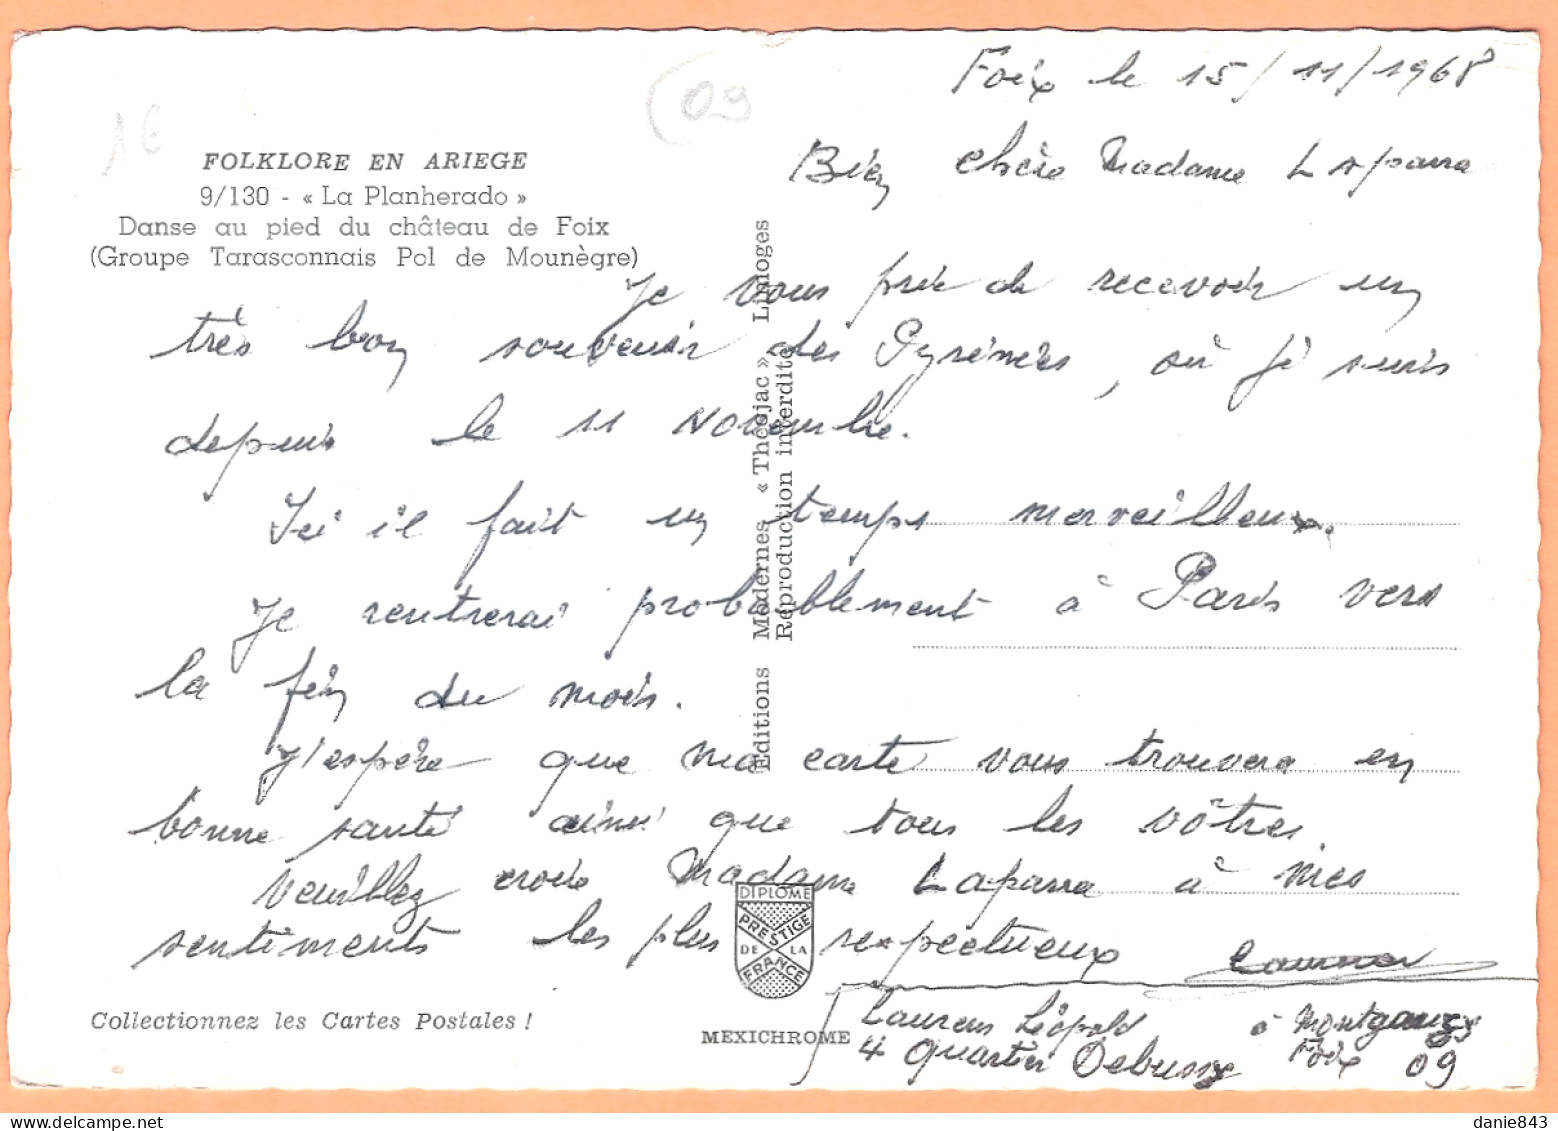 Foix le 15/11/1968
(09
1€
FOLKLORE EN ARIEGE
9/130 - « La Planherado »
Danse au pied du château de Foix
(Groupe Tarasconnais Pol de Mounègre)
Bien chère Madame Laparra
Je vous prie de recevoir un
très bon souvenir des Pyrénées, où je suis
depuis le 11 Novembre.
Ici il fait un temps merveilleux.
Je rentrerai probablement à Paris vers
la fin du mois.
J'espère que ma carte vous trouvera en
bonne santé ainsi que tous les vôtres.
Veuillez croire Madame Laparra à mes
sentiments les plus respectueux
Laurens Léopold à Montgauzy
4 quartier Debussy Foix 09
Editions Modernes « Théojac » Limoges
Reproduction interdite
DIPLOME
PRESTIGE
DE LA
FRANCE
MEXICHROME
Collectionnez les Cartes Postales !
danie843